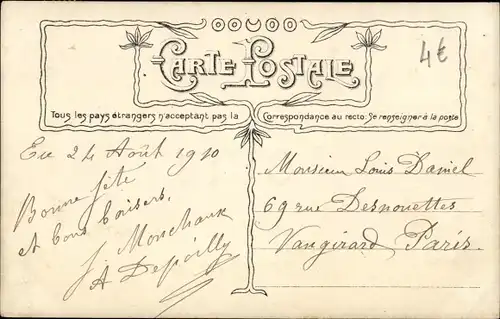 4€
CARTE POSTALE
Tous les pays étrangers n'acceptant pas la Correspondance au recto. Se renseigner à la poste
Eu 24 Août 1910
Bonne fête
et bons baisers,
J. Monchaux
A Depoilly
Monsieur Louis Daniel
69 rue Desnouettes
Vaugirard Paris.